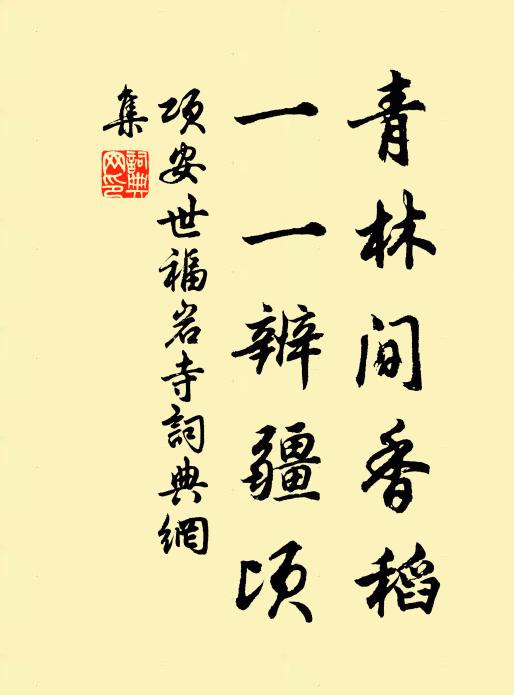 青林间香稻
一一辨疆顷
项安世福岩寺詞典網
集
詞典網印